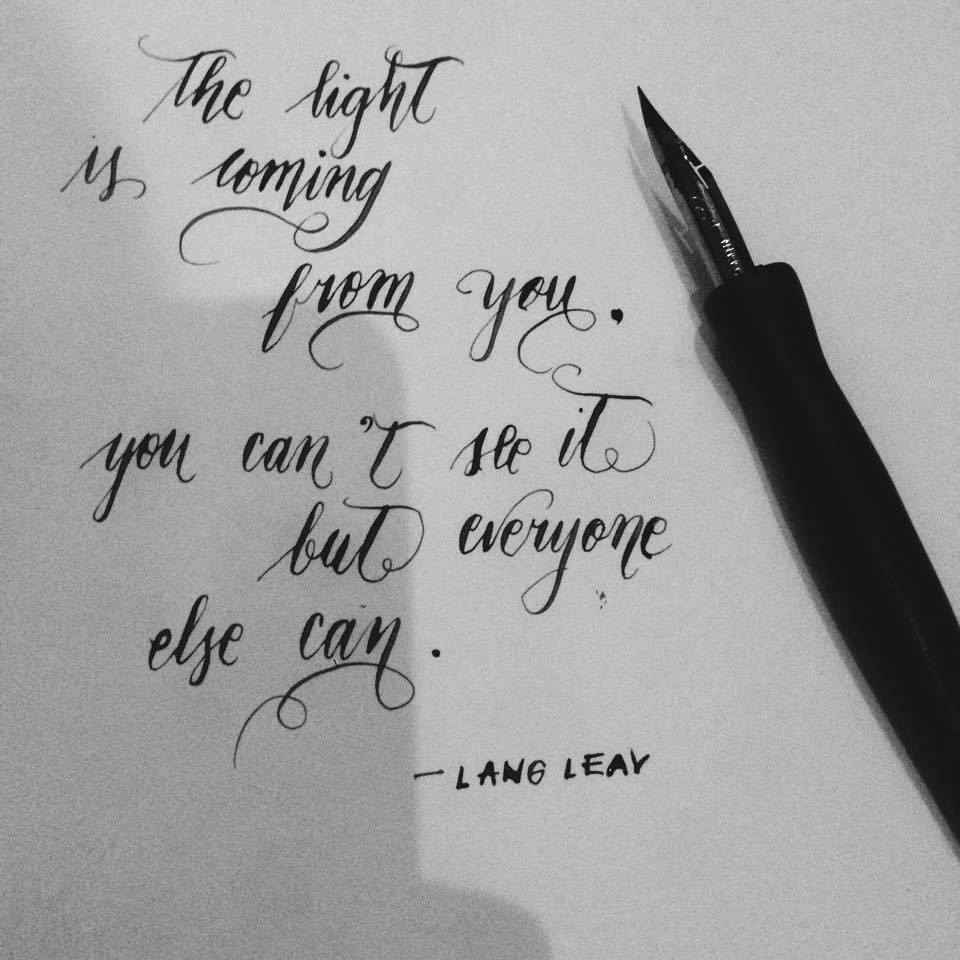 the light
is coming
from you.
you can't see it
but everyone
else can.
- LANG LEAV